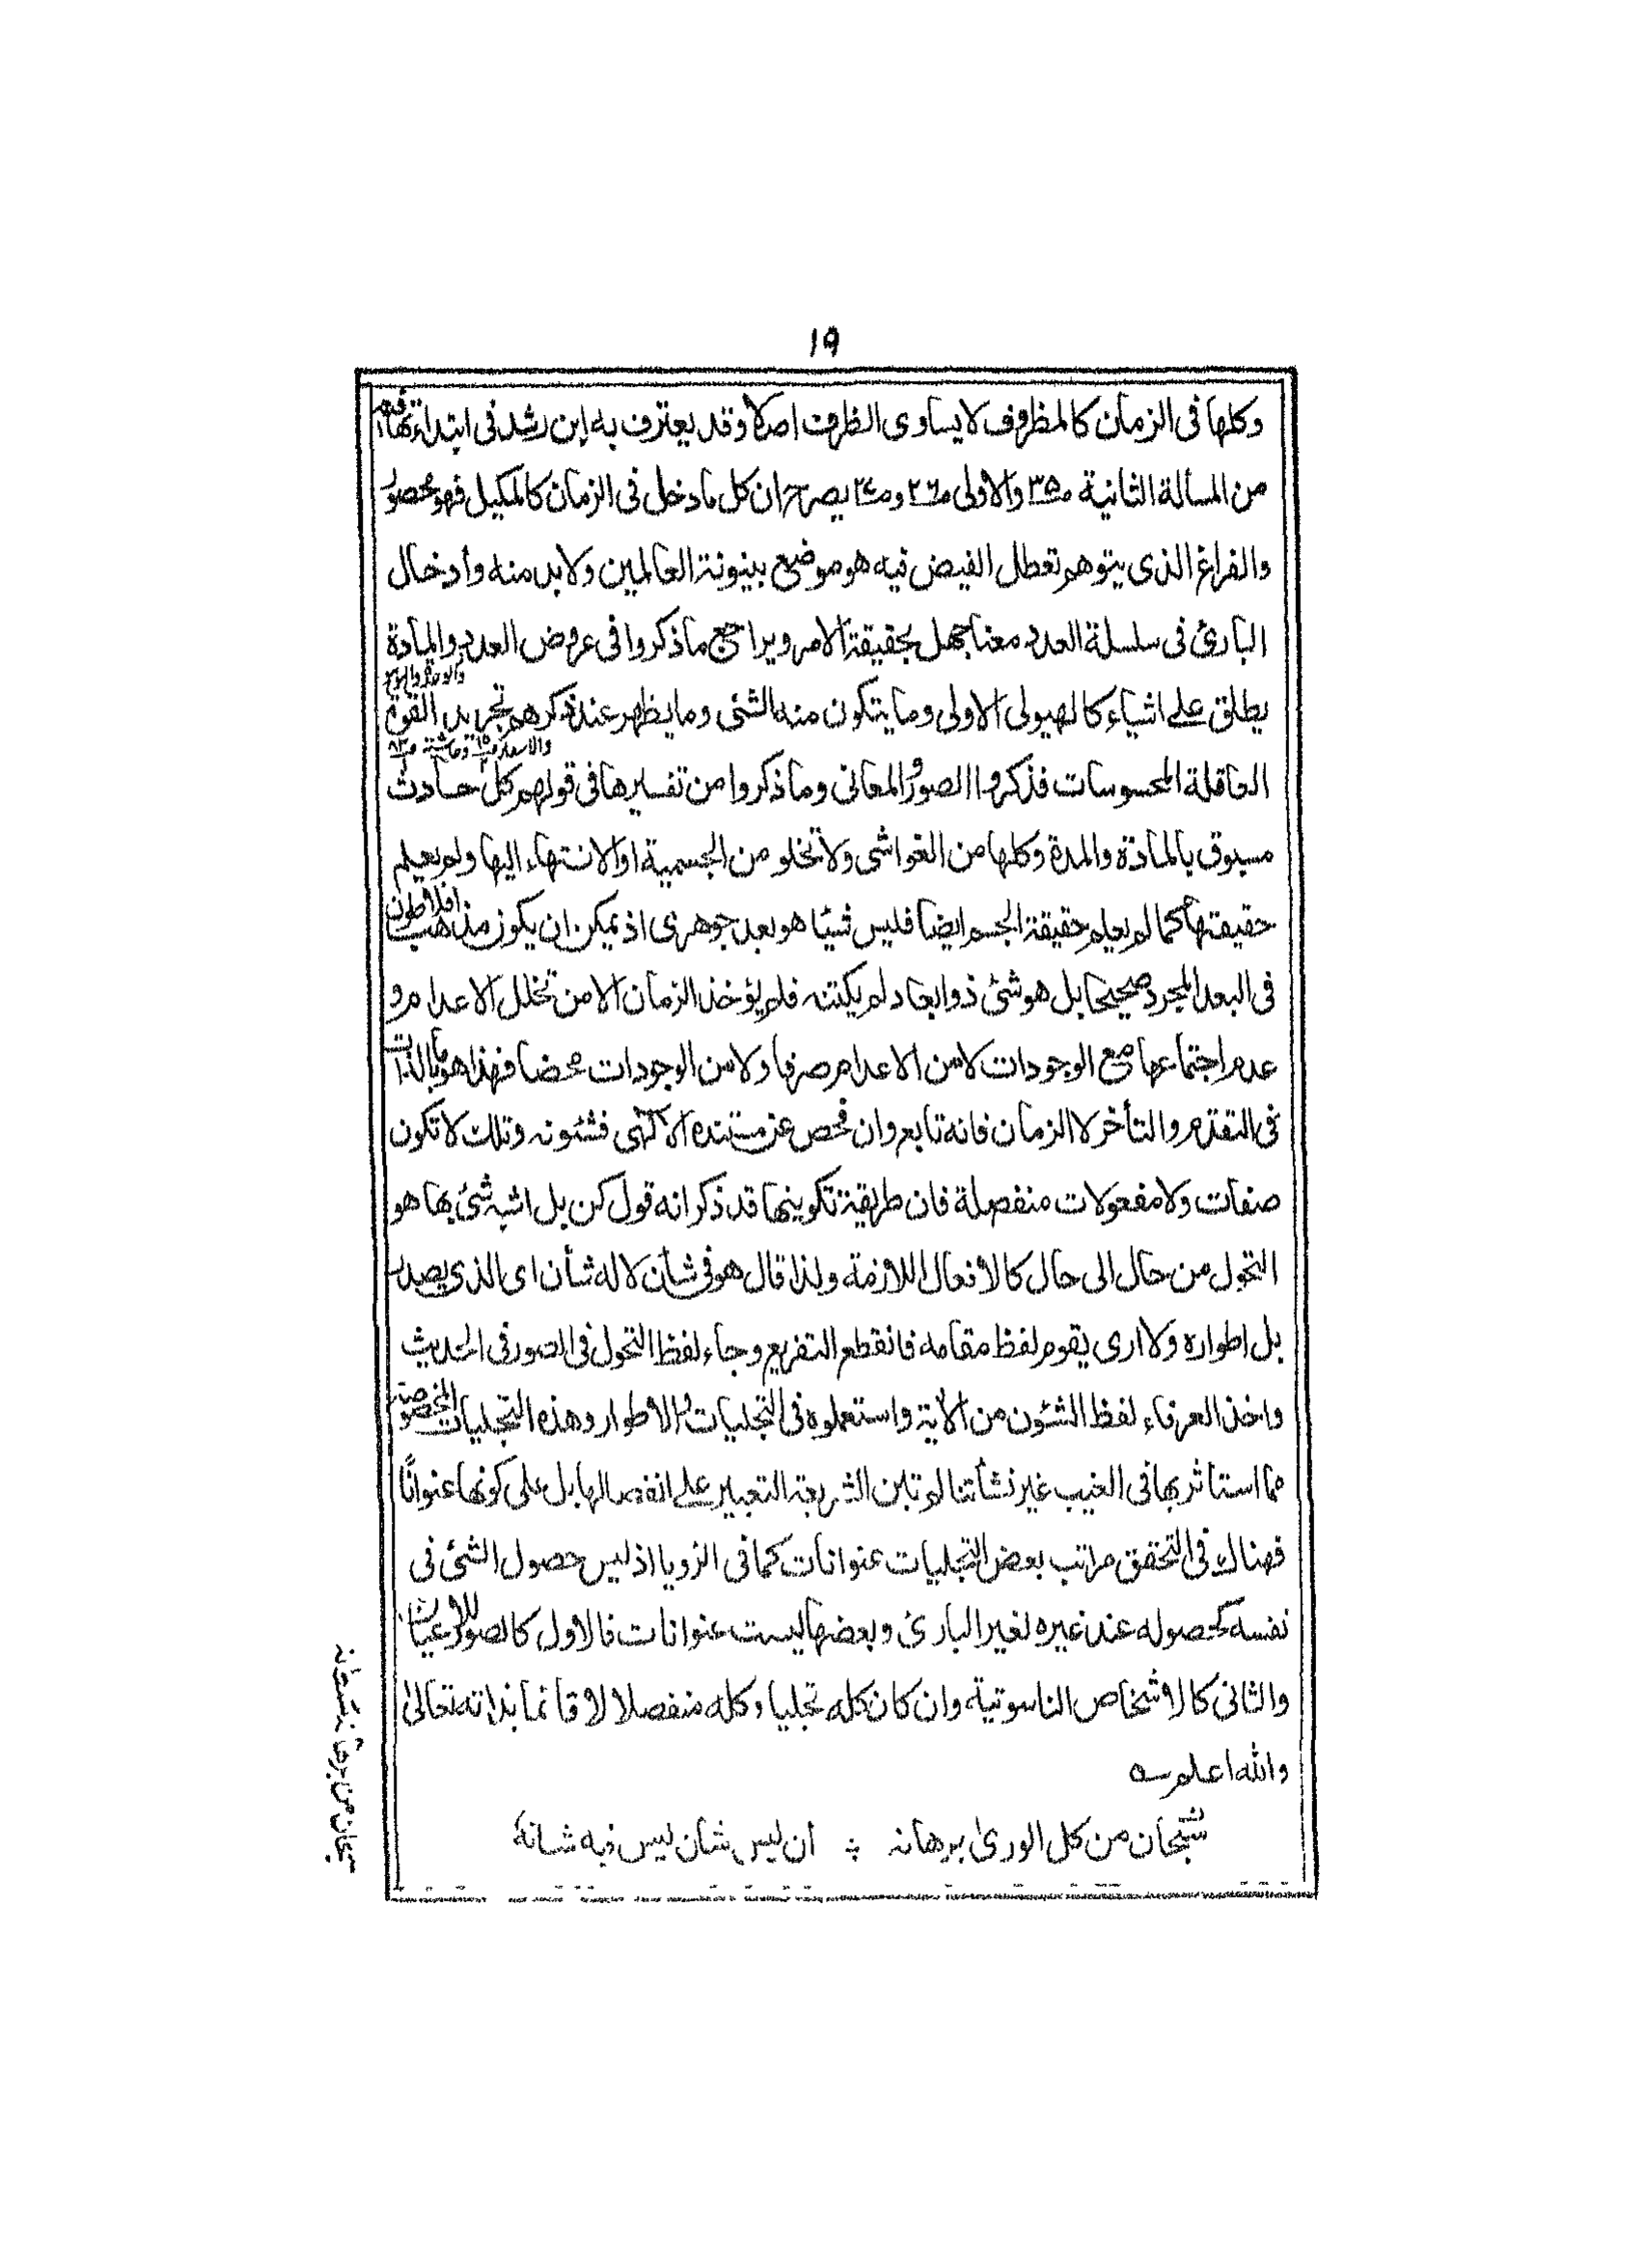 ١٩
وكلها فى الزمان كالمظروف لا يساوى الظرف اصلا وقد يعترف به ابن رشد فى ابتداء تهافته
من المسألة الثانية م٣٥ والاولى م٢٦ وم٢٤ يصرح ان كل ما دخل فى الزمان كالمكيل فهو محصور
والفراغ الذى يتوهم تعطل الفيض فيه هو موضع بينونة العالمين ولابد منه وادخال
البارئ فى سلسلة العدد معنا جهل بحقيقة الامر ويراجع ما ذكروا فى عروض العدد والمادة
يطلق على اشياء كالهيولى الاولى وما يتكون منه الشئ وما يظهر عند ذكرهم تجريد القوة
العاقلة المحسوسات فذكروا الصور والمعانى وما ذكروا من تفسيرها فى قولهم كل حادث
مسبوق بالمادة والمدة وكلها من الغواشى ولا تخلو من الجسمية او الانتهاء اليها ولم يعلم
حقيقتها كما لم يعلم حقيقة الجسم ايضا فليس شيئا هو بعد جوهرى اذ يمكن ان يكون مذهب افلاطون
فى البعد المجرد صحيحا بل هو شئ ذو ابعاد لم يكتنه فلم يؤخذ الزمان الا من تخلل الاعدام و
عدم اجتماعها مع الوجودات لا من الاعدام صرفا ولا من الوجودات محضا فهذا هو ما بالذات
فى التقدم والتأخر لا الزمان فانه تابع وان فحص عن مستنده الالهى فشئونه وتلك لا تكون
صفات ولا مفعولات منفصلة فان طريقة تكوينها قد ذكر انه قول كن بل اشبه شئ بها هو
التحول من حال الى حال كالافعال اللازمة ولذا قال هو فى شان لا له شأن اى الذى يصدر
بل اطواره ولا ارى يقوم لفظ مقامه فانقطع التفريع وجاء لفظ التحول فى الصور فى الحديث
واخذ العرفاء لفظ الشئون من الآية واستعملوه فى التجليات والاطوار وهذه التجليات المخصوصة
مما استاثر بها فى الغيب غير نشأتنا لم تبن الشريعة التعبير على انفصالها بل على كونها عنوانًا
فهناك فى التحقق مراتب بعض التجليات عنوانات كما فى الرويا اذ ليس حصول الشئ فى
نفسه كحصوله عند غيره لغير البارئ وبعضها ليست عنوانات فالاول كالصور للاعيان
والثانى كالاشخاص الناسوتية وان كان كله تجليا وكله منفصلا لا قائما بذاته تعالى
والله اعلم ـه
سبحان من كل الورى برهانه ؞ ان ليس شان ليس فيه شانهٗ
سبحان من برهانه